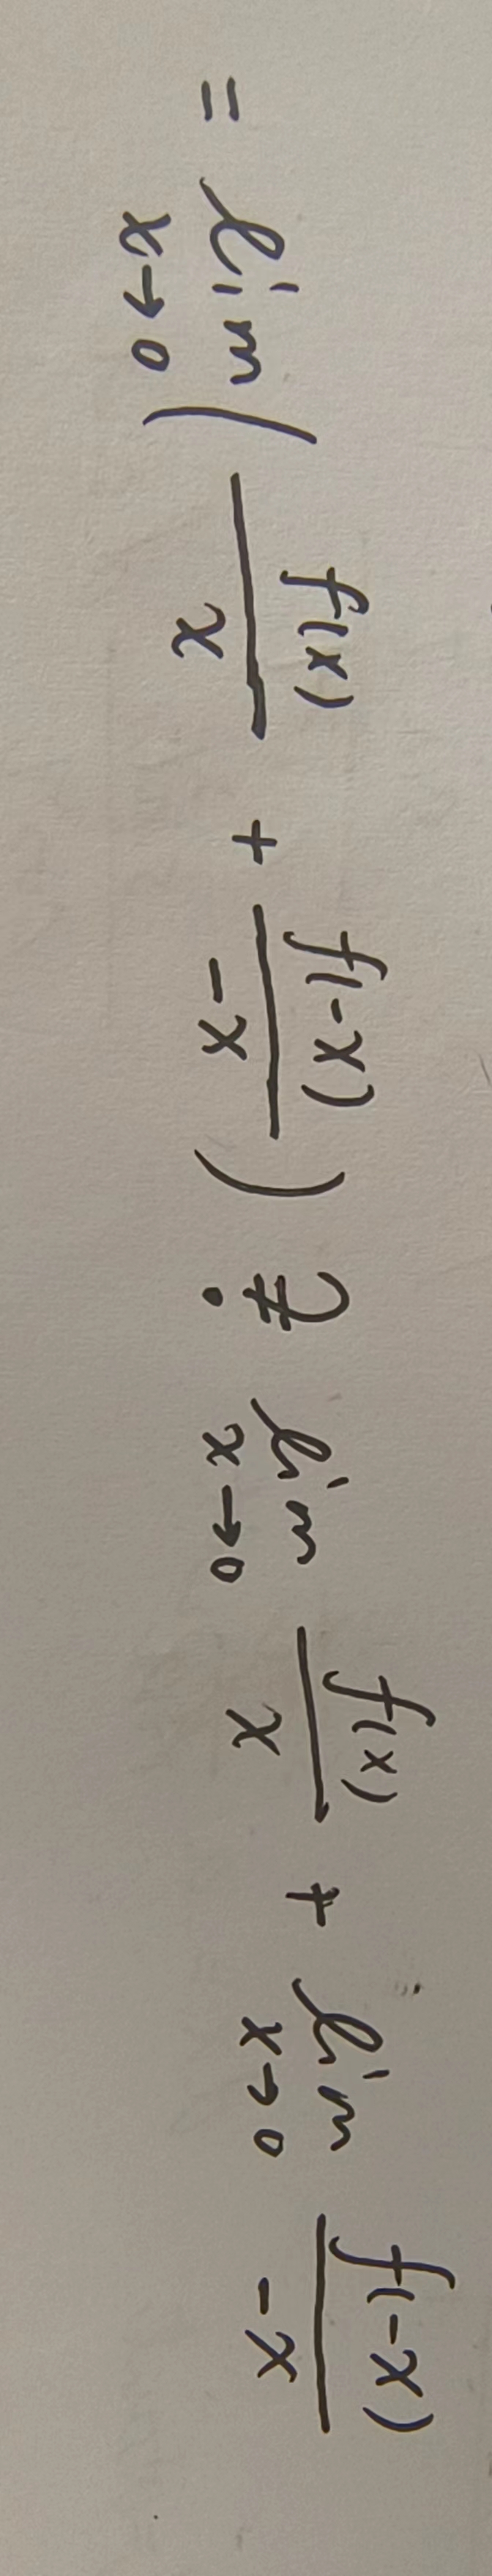 = lim_{x→0} ( f(x)/x + f(-x)/-x ) ≠? lim_{x→0} f(x)/x + lim_{x→0} f(-x)/-x